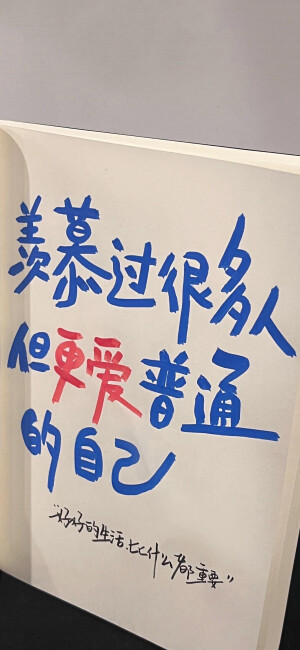 羡慕过很多人
但更爱普通
的自己
“好好的生活，比什么都重要”